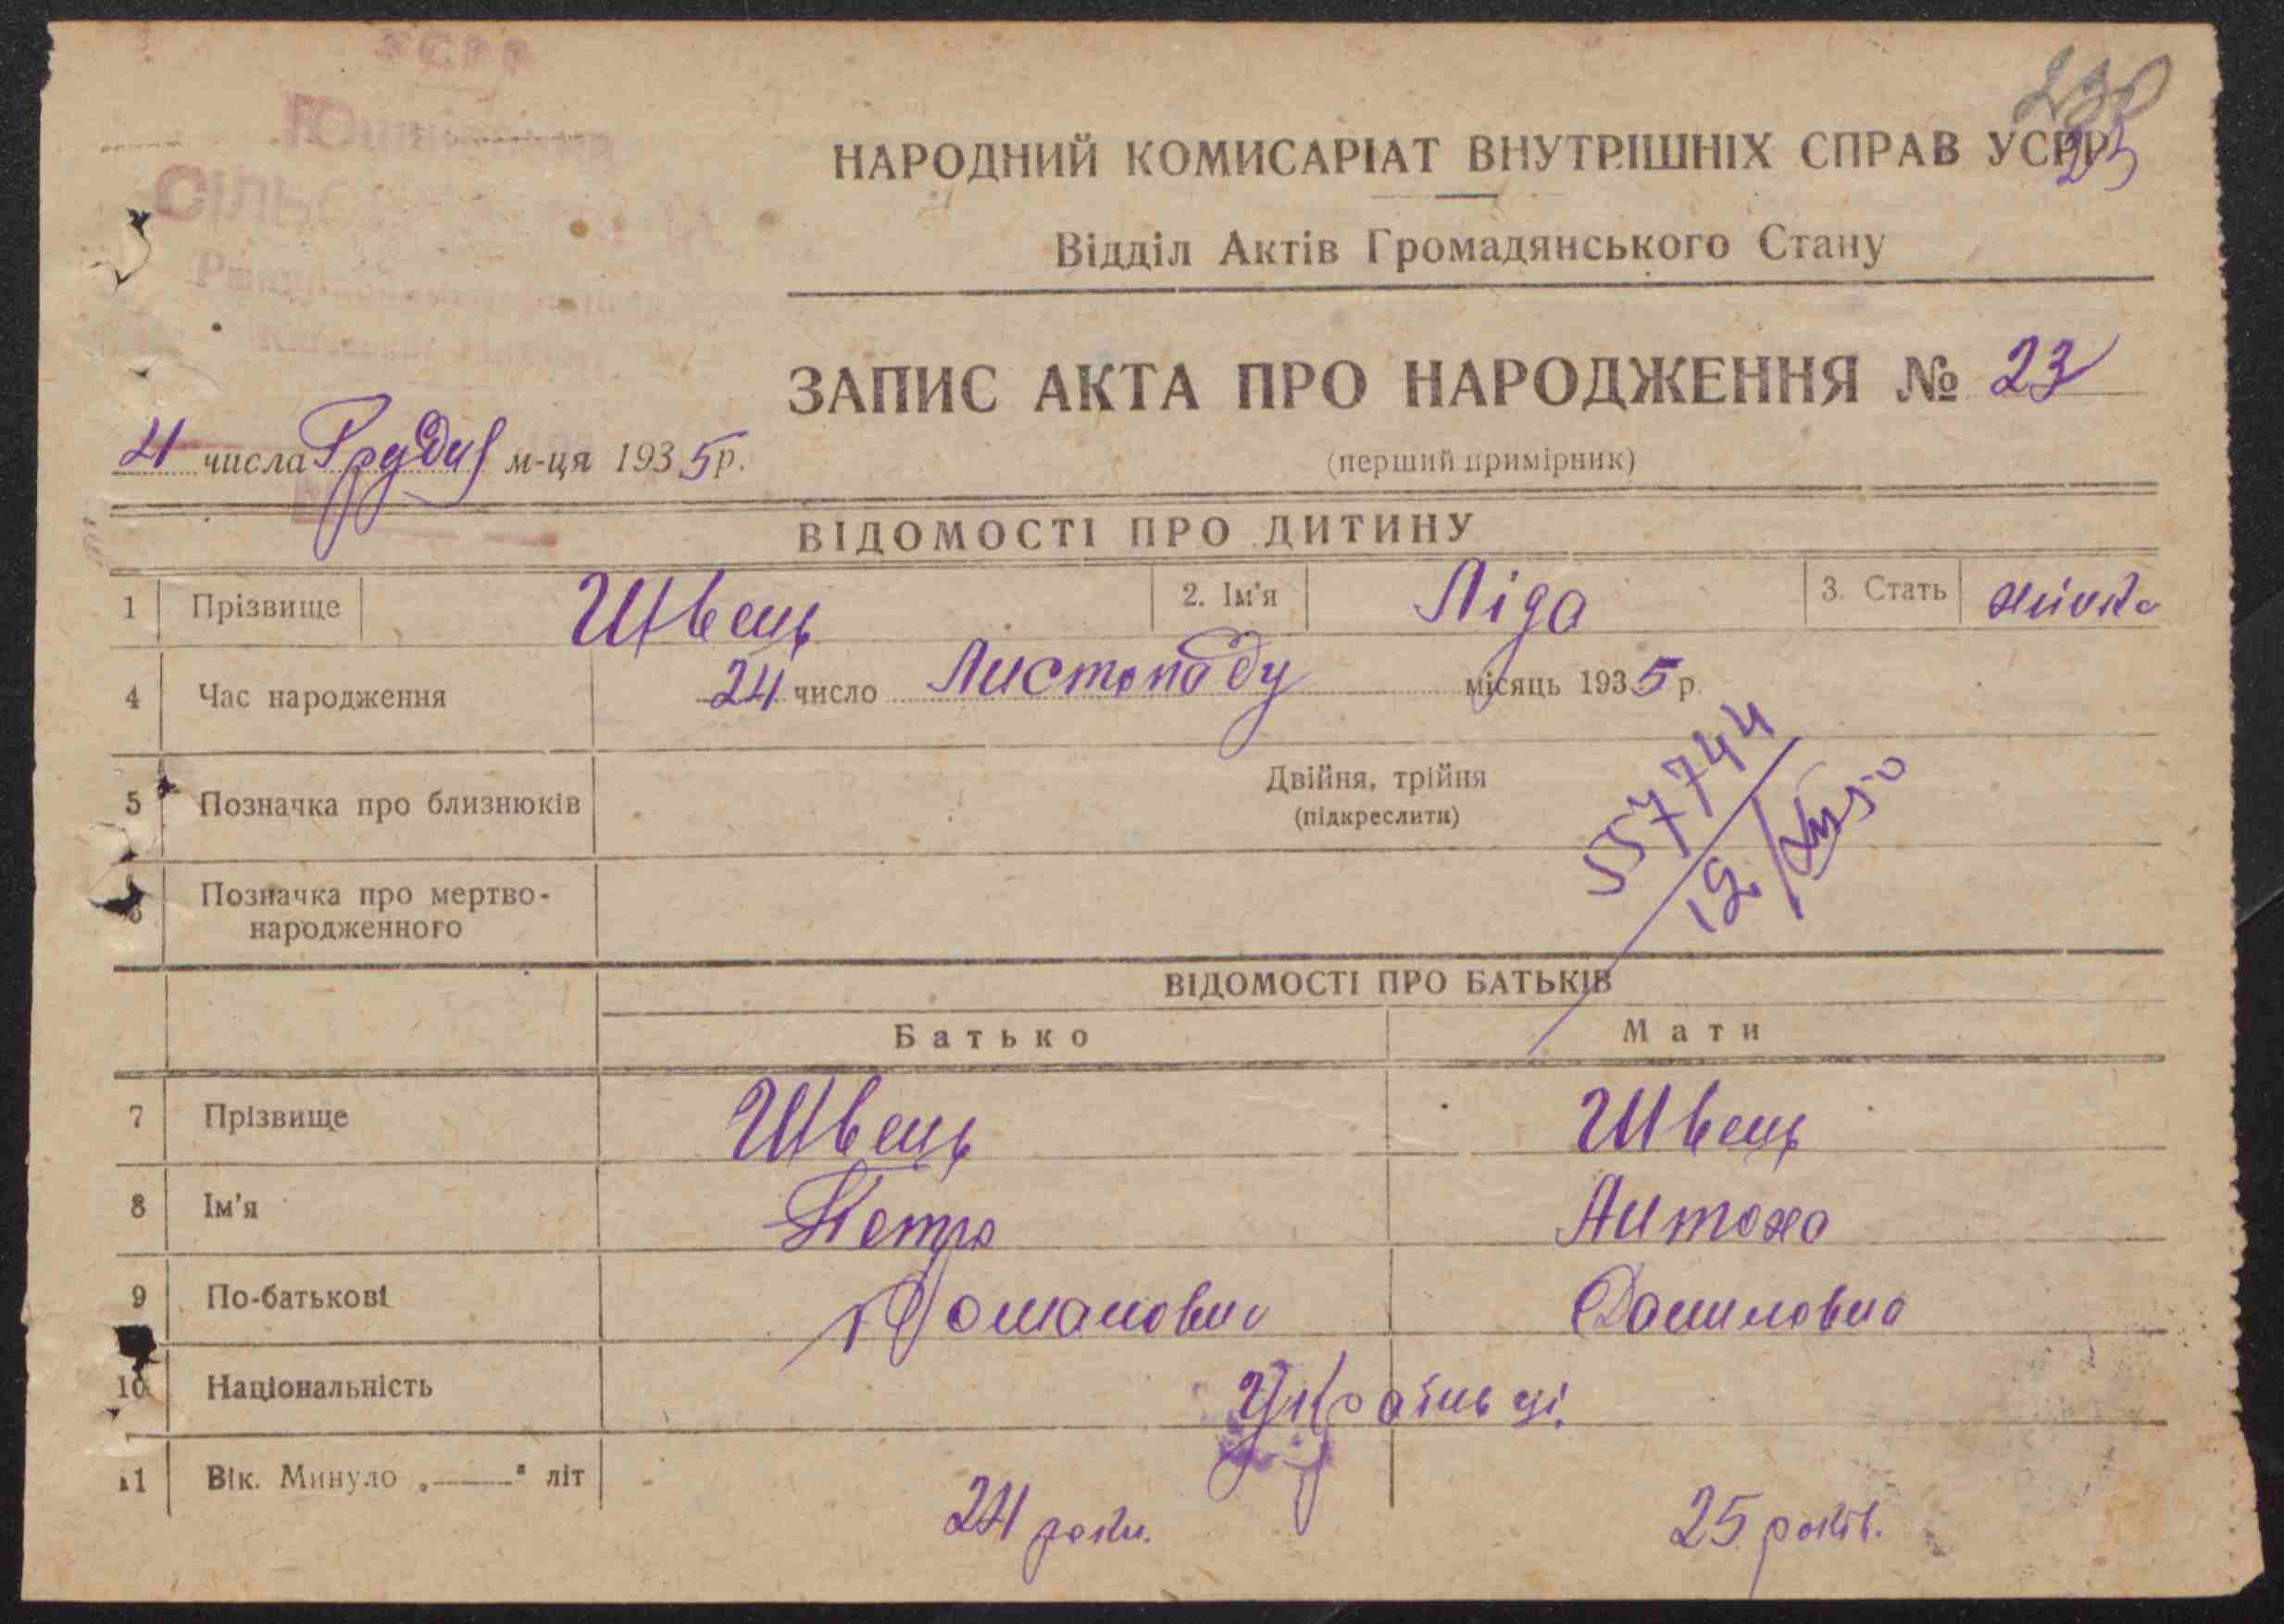 УСРР
СІЛЬС
230
НАРОДНИЙ КОМИСАРІАТ ВНУТРІШНІХ СПРАВ УСРР
23
Відділ Актів Громадянського Стану
ЗАПИС АКТА ПРО НАРОДЖЕННЯ № 23
4 числа Грудня м-ця 1935 р.
(перший примірник)
ВІДОМОСТІ ПРО ДИТИНУ
1 Прізвище Швець 2. Ім'я Ліда 3. Стать жіноча
4 Час народження 24 число Листопаду місяць 1935 р.
5 Позначка про близнюків Двійня, трійня
(підкреслити)
557744
12
6 Позначка про мертво-
народженного
ВІДОМОСТІ ПРО БАТЬКІВ
Батько Мати
7 Прізвище Швець Швець
8 Ім'я Петро
9 По-батькові Романович Даниловна
10 Національність Україньці
11 Вік. Минуло „——" літ 24 роки. 25 років.